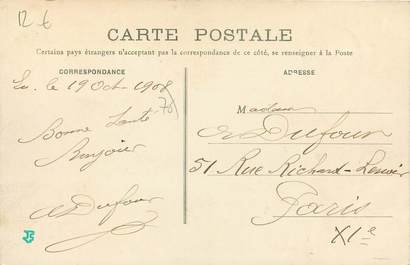 12 €
CARTE POSTALE
Certains pays étrangers n'acceptant pas la correspondance de ce côté, se renseigner à la Poste
CORRESPONDANCE
Eu. le 19 Oct. 1908
78
Bonne Santé
Bonjour
Dufour
ADRESSE
Madame
Dufour
51 Rue Richard-Lenoir
Paris
XIe